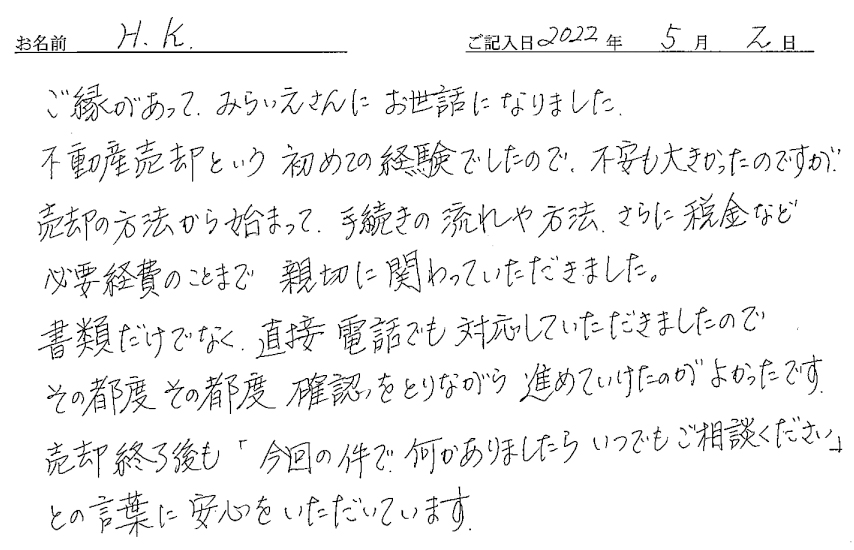 お名前 H.K. ご記入日 2022年 5月 2日
ご縁があって、みらいえさんに お世話になりました。
不動産売却という 初めての経験でしたので、不安も大きかったのですが、
売却の方法から始まって、手続きの 流れや方法、さらに 税金など
必要経費のことまで 親切に 関わっていただきました。
書類だけでなく、直接 電話でも 対応していただきましたので
その都度 その都度 確認をとりながら 進めていけたのが よかったです。
売却終了後も「今回の件で、何かありましたら いつでもご相談ください」
との言葉に 安心をいただいています。